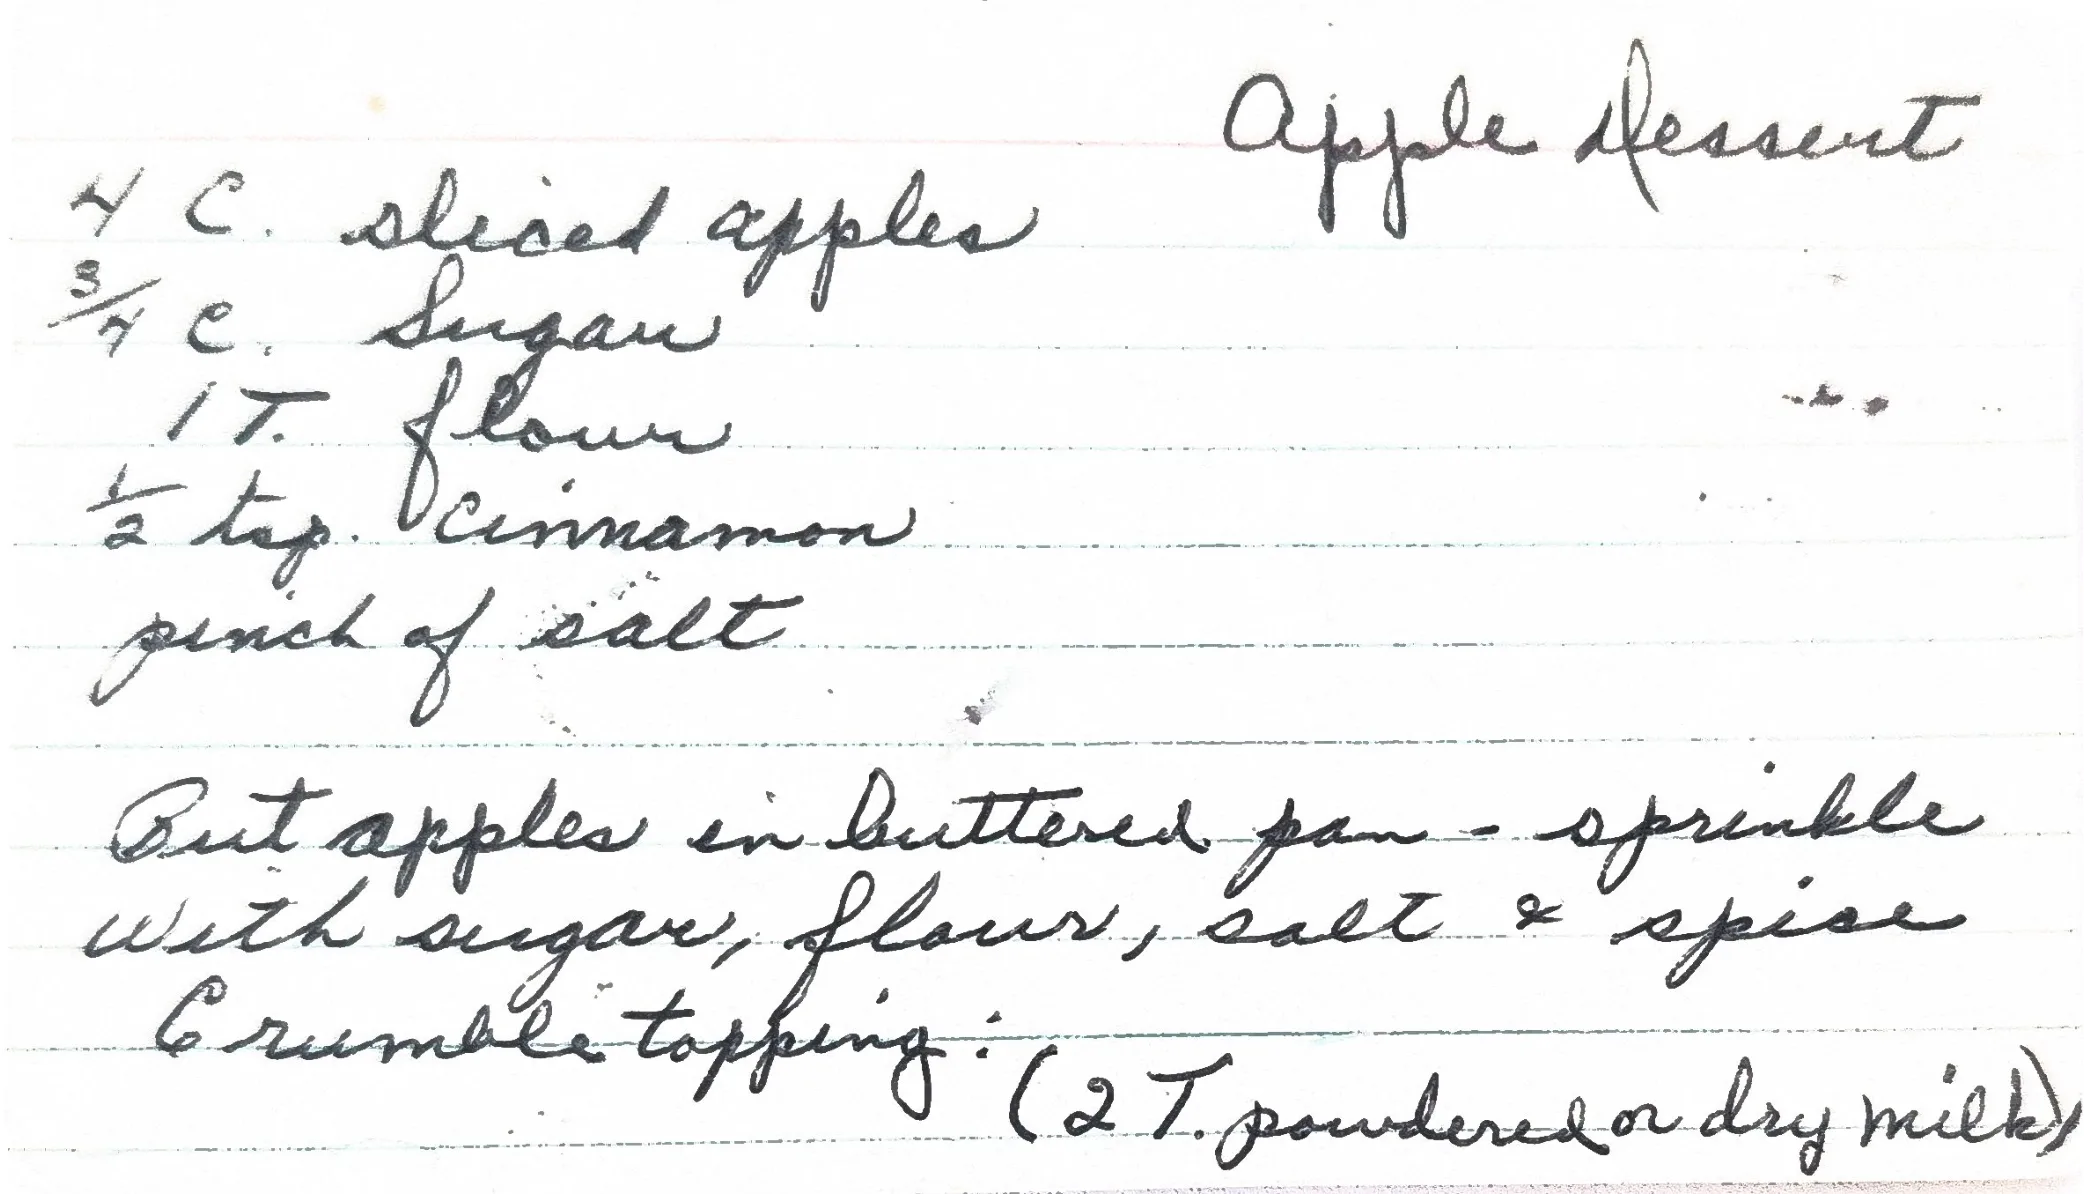 Apple Dessert
4 C. sliced apples
3/4 C. Sugar
1 T. flour
1/2 tsp. Cinnamon
pinch of salt
Put apples in buttered pan - sprinkle
with sugar, flour, salt & spice
Crumble topping:
(2 T. powdered or dry milk)